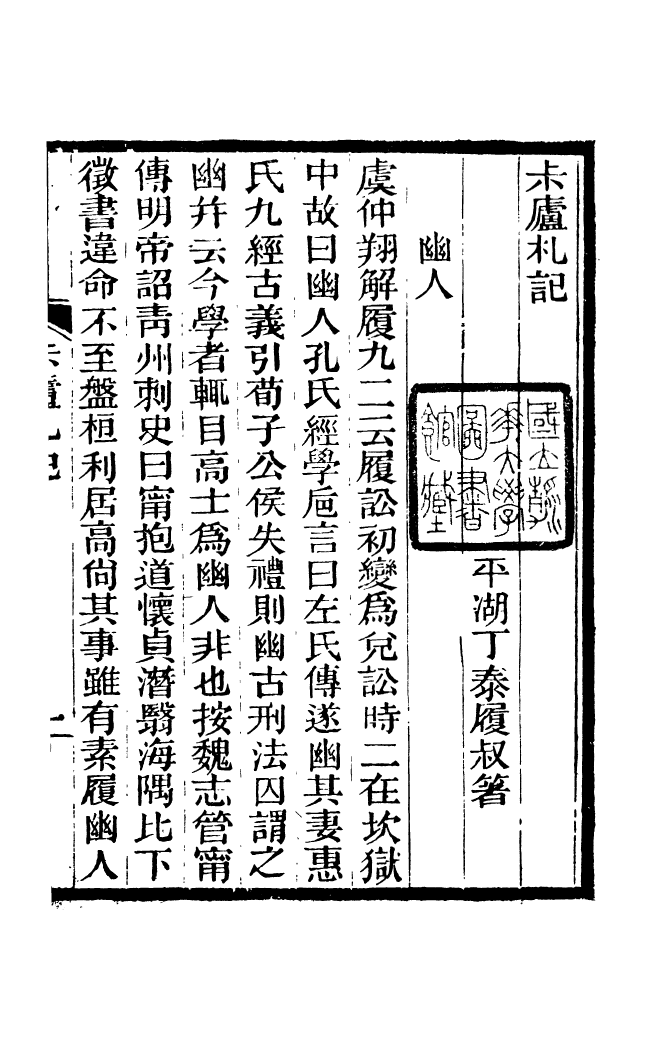 尗廬札記
平湖丁泰履叔箸
幽人
虞仲翔解履九二云履訟初變爲兌訟時二在坎獄
中故曰幽人孔氏經學巵言曰左氏傳遂幽其妻惠
氏九經古義引荀子公侯失禮則幽古刑法囚謂之
幽幷云今學者輒目高士爲幽人非也按魏志管甯
傳明帝詔靑州刺史曰甯抱道懷貞潛翳海隅比下
徵書違命不至盤桓利居高尙其事雖有素履幽人
國立清華大學
圖書
館藏